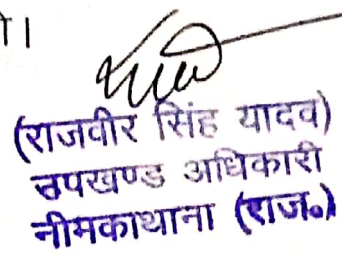 ।
(राजवीर सिंह यादव)
उपखण्ड अधिकारी
नीमकाथाना (राज०)